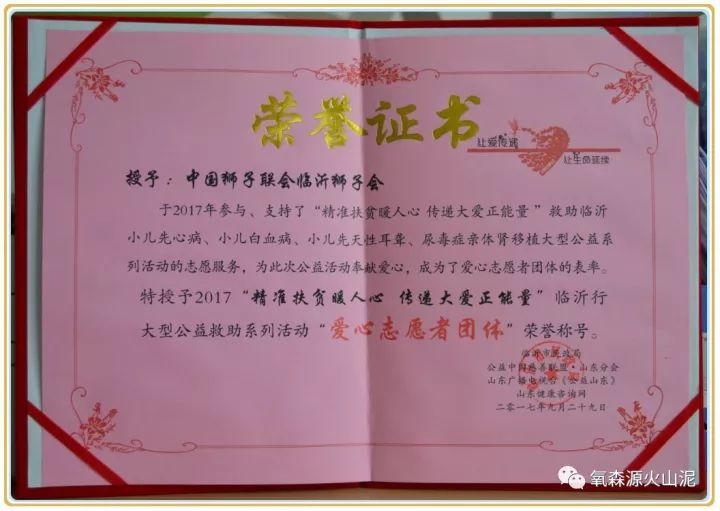 荣誉证书
让爱传递
让生命延续
授予：中国狮子联会临沂狮子会
于2017年参与、支持了“精准扶贫暖人心 传递大爱正能量”救助临沂
小儿先心病、小儿白血病、小儿先天性耳聋、尿毒症亲体肾移植大型公益系
列活动的志愿服务，为此次公益活动奉献爱心，成为了爱心志愿者团体的表率。
特授予2017“精准扶贫暖人心 传递大爱正能量”临沂行
大型公益救助系列活动“爱心志愿者团体”荣誉称号。
临沂市民政局
公益中国慈善联盟·山东分会
山东广播电视台《公益山东》
山东健康咨询网
二〇一七年九月二十九日
氧森源火山泥